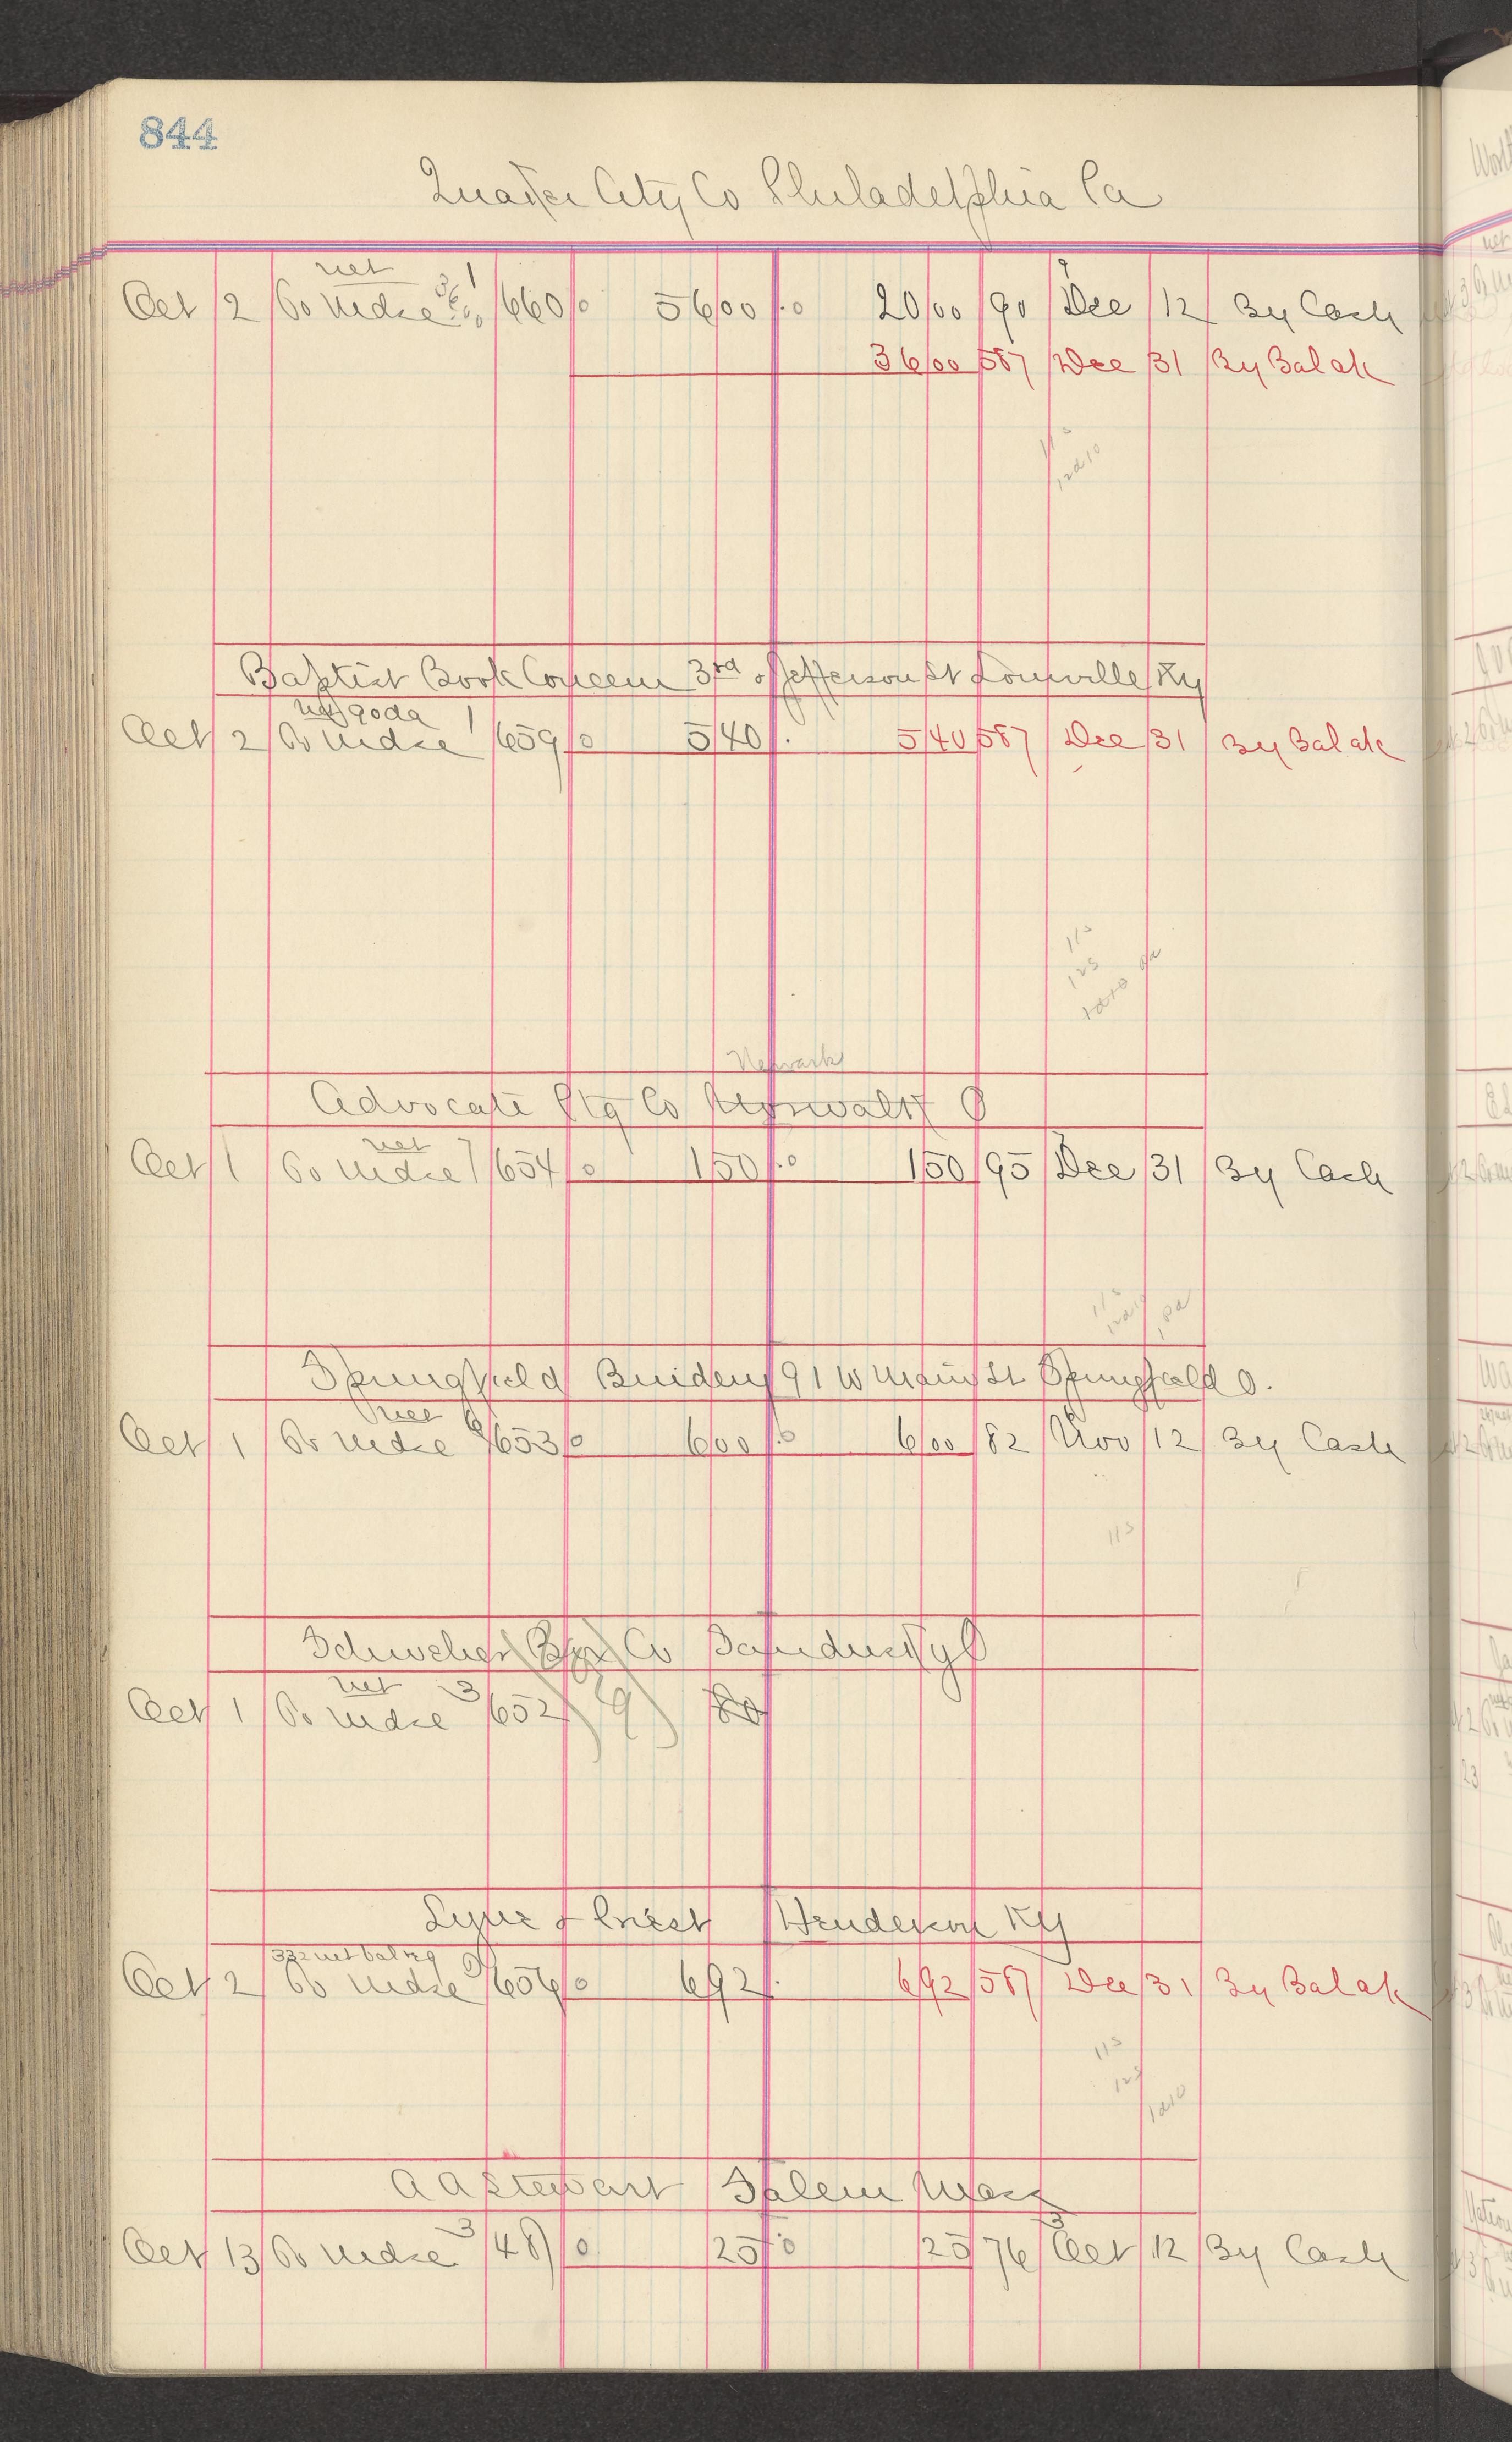 844
Quaker City Co Philadelphia Pa
net
Oct 2 To Mdse 1 660 56 00 20 00 90 Dec 12 By Cash
36 00 587 Dec 31 By Balak
Baptist Book Concern 3rd & Jefferson St Louisville Ky
net 90da
Oct 2 To Mdse 1 659 5 40 5 40 587 Dec 31 By Balak
Newark
Advocate Ptg Co Norwalk O
net
Oct 1 To Mdse 7 654 1 50 1 50 95 Dec 31 By Cash
Springfield Bindery 91 W Main St Springfield O.
net
Oct 1 To Mdse 653 6 00 6 00 82 Nov 12 By Cash
113
Co Sandusky O
net
Oct 1 To Mdse 3 652 80
Lyne & Priest Henderson Ky
net bal reg
Oct 2 To Mdse 656 6 92 6 92 587 Dec 31 By Balak
A A Stewart Salem Mass
Oct 13 To Mdse 3 48 25 25 76 Oct 12 By Cash